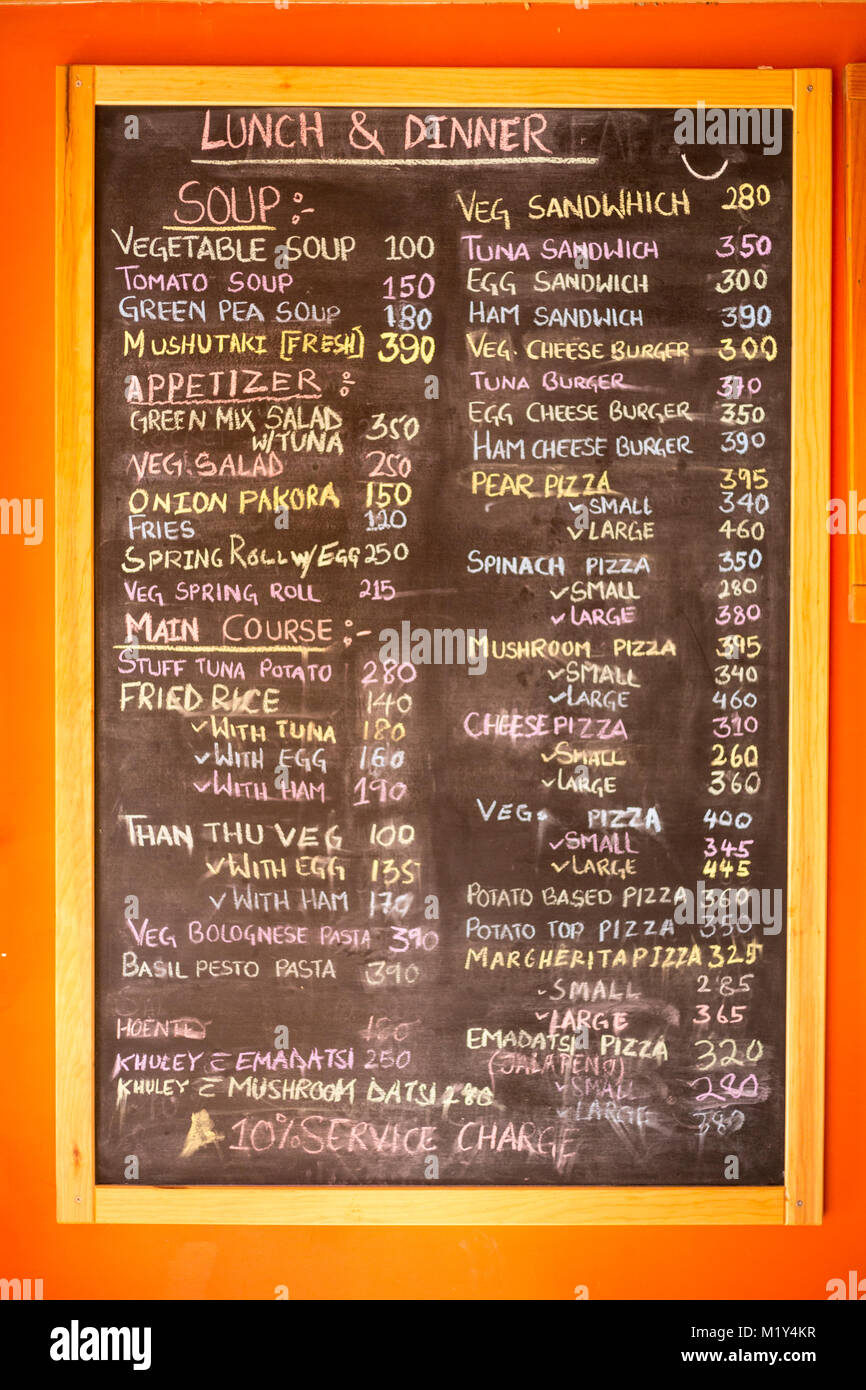 LUNCH & DINNER
SOUP:-
VEGETABLE SOUP 100
TOMATO SOUP 150
GREEN PEA SOUP 180
MUSHUTAKI [FRESH] 390
APPETIZER:-
GREEN MIX SALAD
W/TUNA 350
VEG SALAD 250
ONION PAKORA 150
FRIES 120
SPRING ROLL W/EGG 250
VEG SPRING ROLL 215
MAIN COURSE:-
STUFF TUNA POTATO 280
FRIED RICE 140
✓WITH TUNA 180
✓WITH EGG 160
✓WITH HAM 190
THAN THU VEG 100
✓WITH EGG 135
✓WITH HAM 170
VEG BOLOGNESE PASTA 390
BASIL PESTO PASTA 390
HOENTE
KHULEY Z EMADATSI 250
KHULEY Z MUSHROOM DATSI 280
10% SERVICE CHARGE
VEG SANDWHICH 280
TUNA SANDWICH 350
EGG SANDWICH 300
HAM SANDWICH 390
VEG. CHEESE BURGER 300
TUNA BURGER 370
EGG CHEESE BURGER 350
HAM CHEESE BURGER 390
PEAR PIZZA 395
✓SMALL 340
✓LARGE 460
SPINACH PIZZA 350
✓SMALL 280
✓LARGE 380
MUSHROOM PIZZA 395
✓SMALL 340
✓LARGE 460
CHEESE PIZZA 310
✓SMALL 260
✓LARGE 360
VEG. PIZZA 400
✓SMALL 345
✓LARGE 445
POTATO BASED PIZZA 360
POTATO TOP PIZZA 350
MARGHERITA PIZZA 325
✓SMALL 285
✓LARGE 365
EMADATSI PIZZA 320
(JALAPENO)
✓SMALL 280
✓LARGE 380
alamy
Image ID: M1Y4KR
www.alamy.com